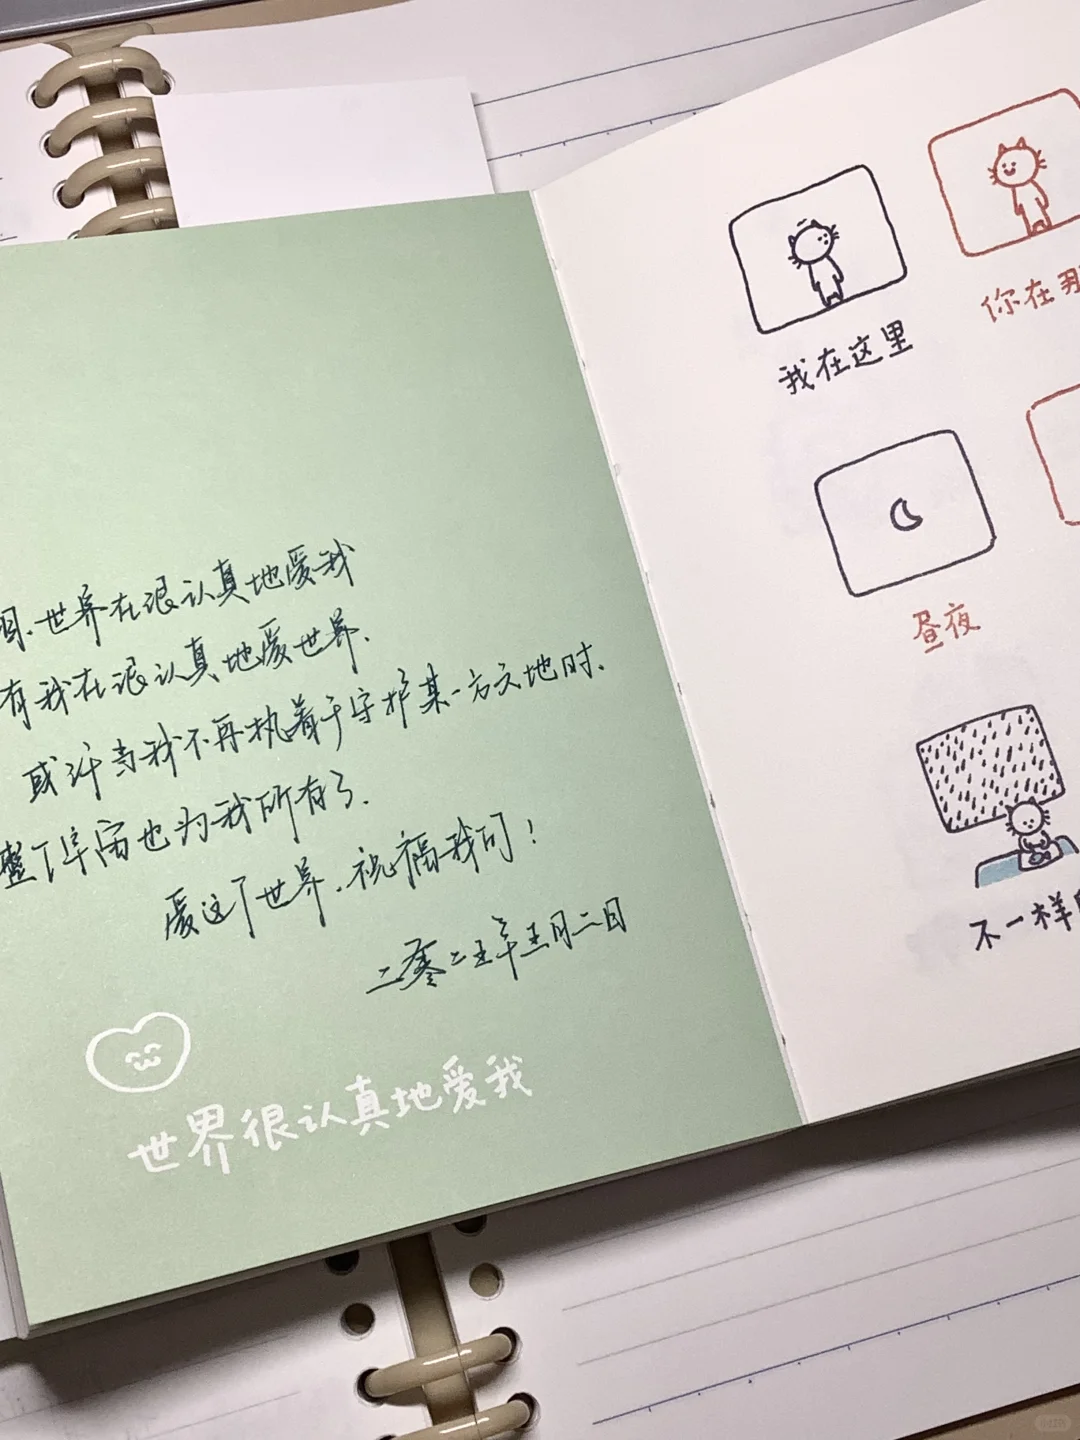 世界在很认真地爱我
有我在很认真地爱世界.
或许当我不再执着于守护某一方天地时.
整个宇宙也为我所有了.
爱这个世界.祝福我们!
二零二五年五月二日
世界很认真地爱我
我在这里
你在那
昼夜
不一样